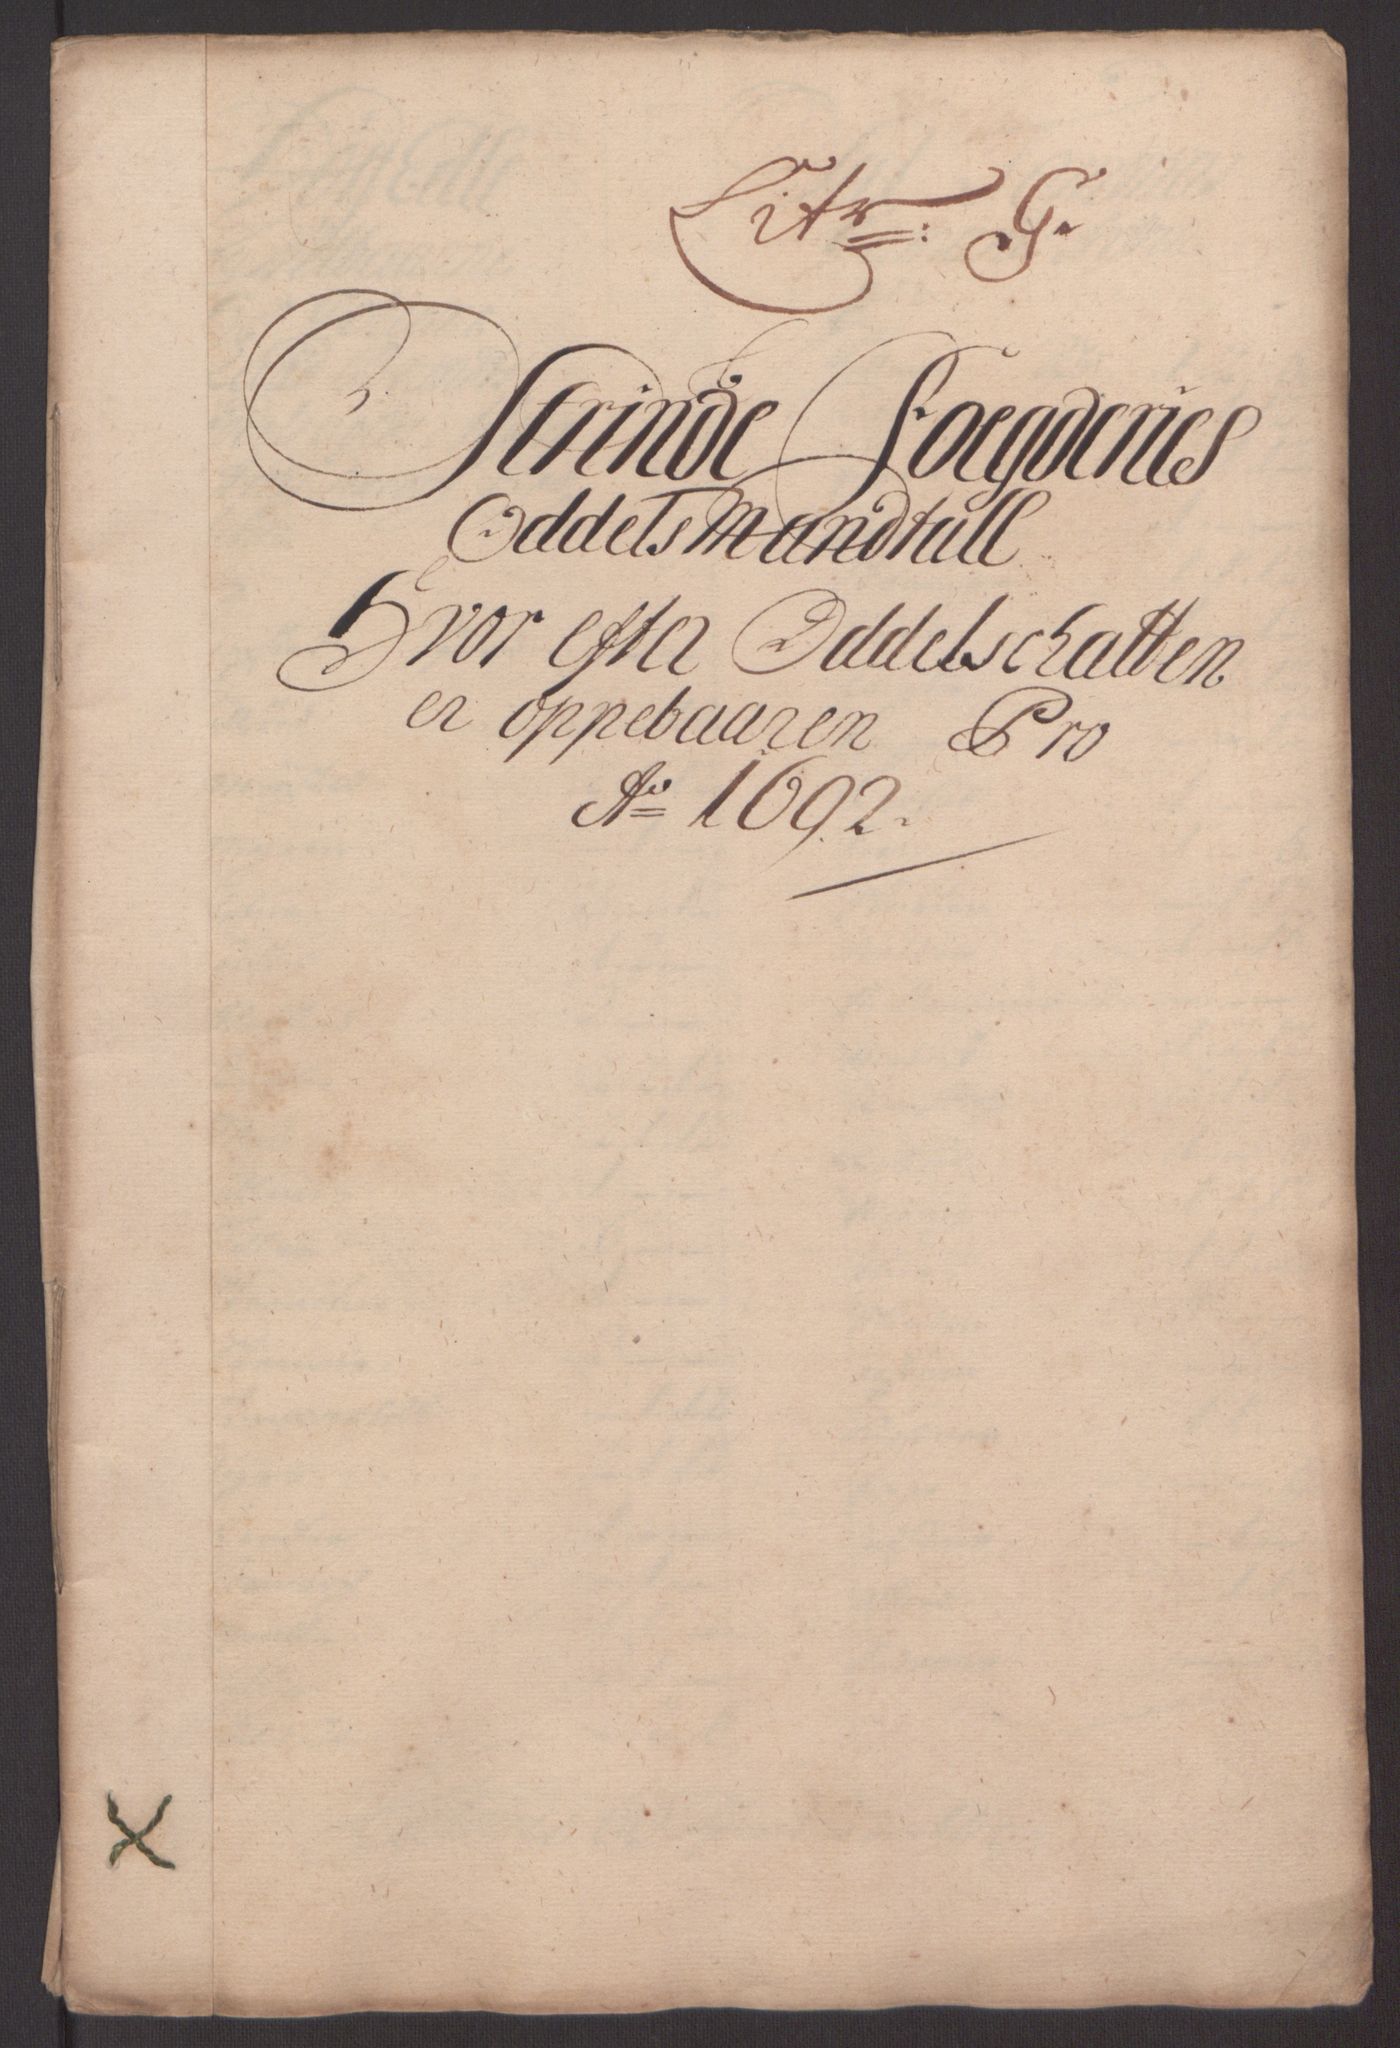 Litr: G.
Strinde Foegderies
Oddels Mandtall
Hvor efter Oddelschatten
er oppebaaren Pro
Ao 1692.